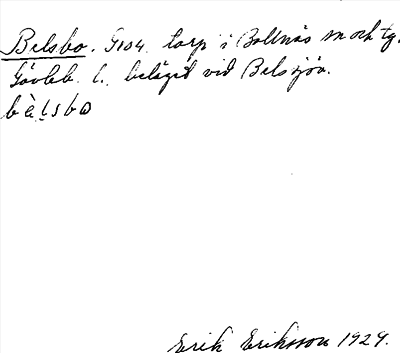 Belsbo. G104. torp i Bollnäs sn och tg.
Gävleb. l. beläget vid Belsjön.
bèlsbo
Erik Eriksson 1929.